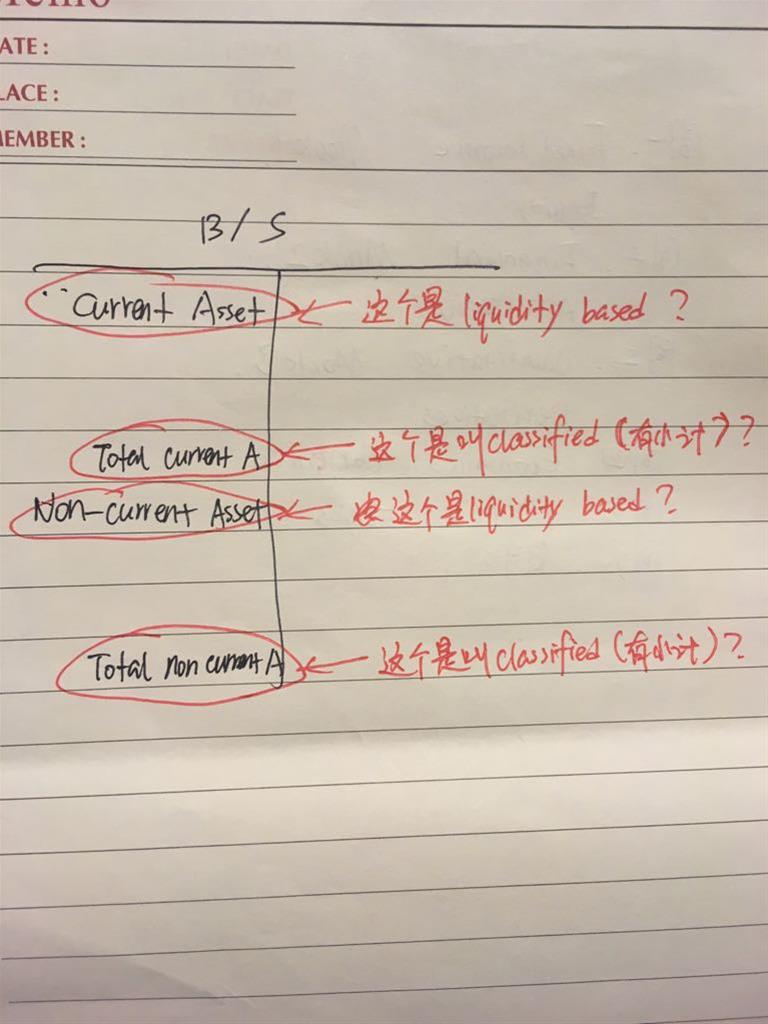 ATE :
LACE :
EMBER :
B/S
Current Asset ← 这个是liquidity based ?
Total current A ← 这个是叫classified (有小计) ?
Non-current Asset ← 这个是liquidity based ?
Total non current A ← 这个是叫classified (有小计) ?